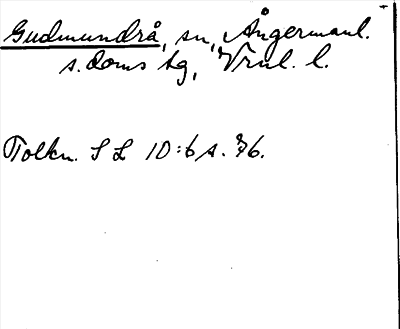 Gudmundrå, sn, Ångermanl.
s. doms tg, Vrnl. l.
Tolkn. SL 10:6 s. 76.